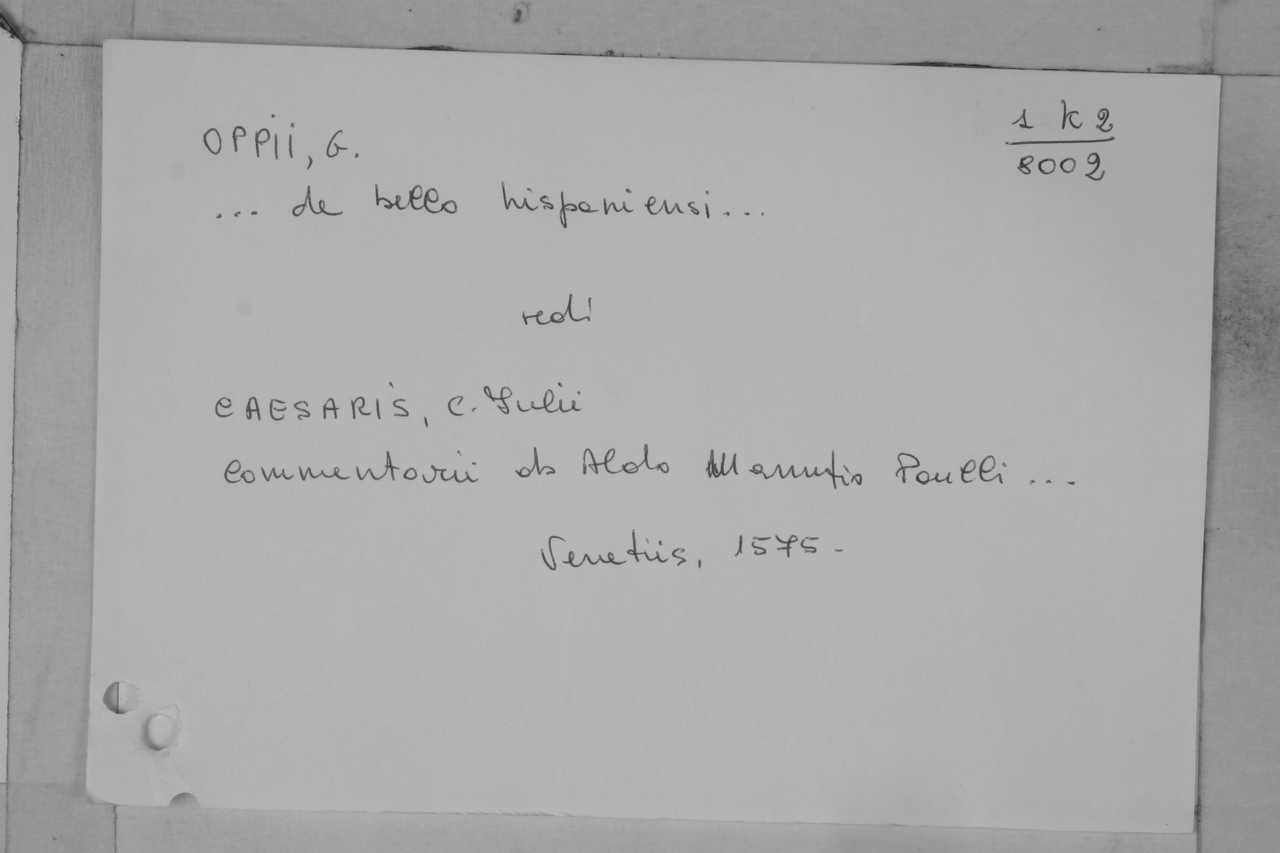 OPPII, G.
1 K 2
8002
... de bello hispaniensi...
vedi
CAESARIS, C. Iulii
Commentarii ab Aldo Manutio Paulli ...
Venetiis, 1575 -